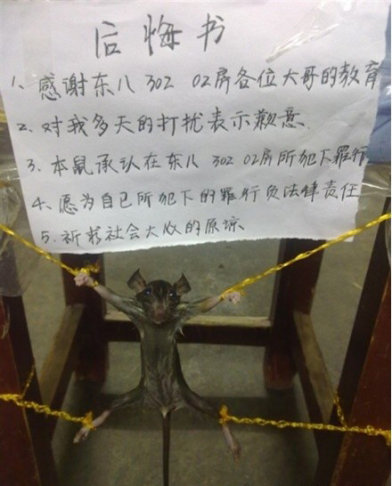 后悔书
1、感谢东八 302 02房各位大哥的教育
2、对我多天的打扰表示歉意.
3、本鼠承认在东八 302 02房所犯下罪行
4、愿为自己所犯下的罪行负法律责任
5、祈求社会大众的原谅、